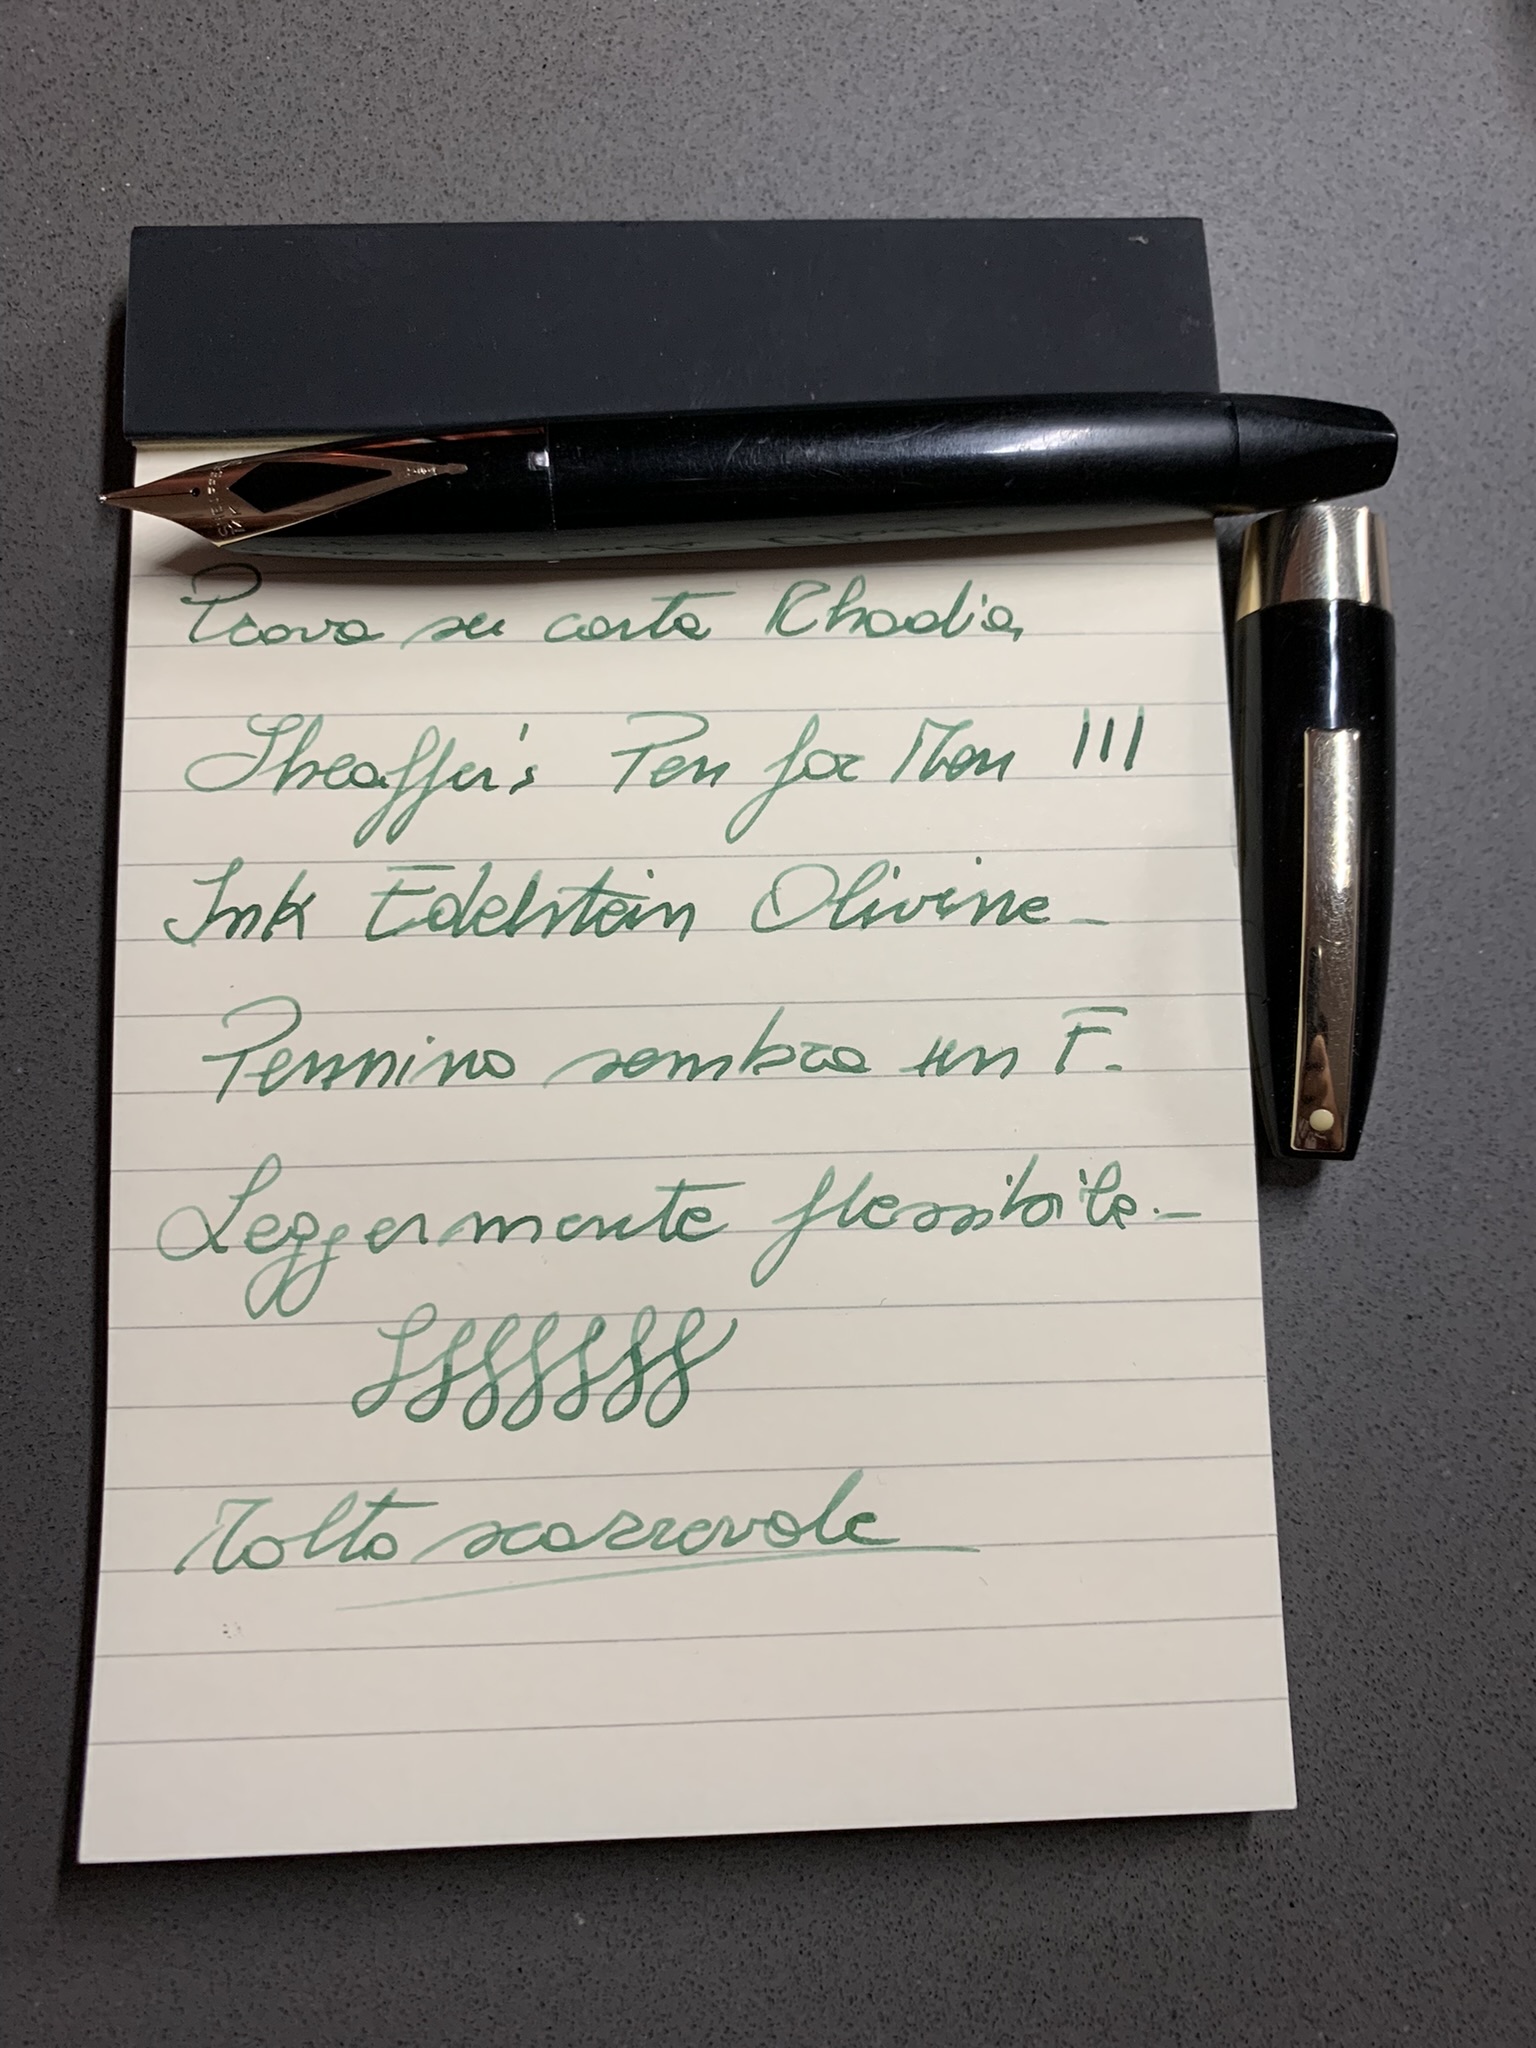 SHEAFFER'S
14K
Prova su carta Rhodia
Sheaffer's Pen for Men III
Ink Edelstein Olivine
Pennino sembra un F.
Leggermente flessibile.
Molto scorrevole